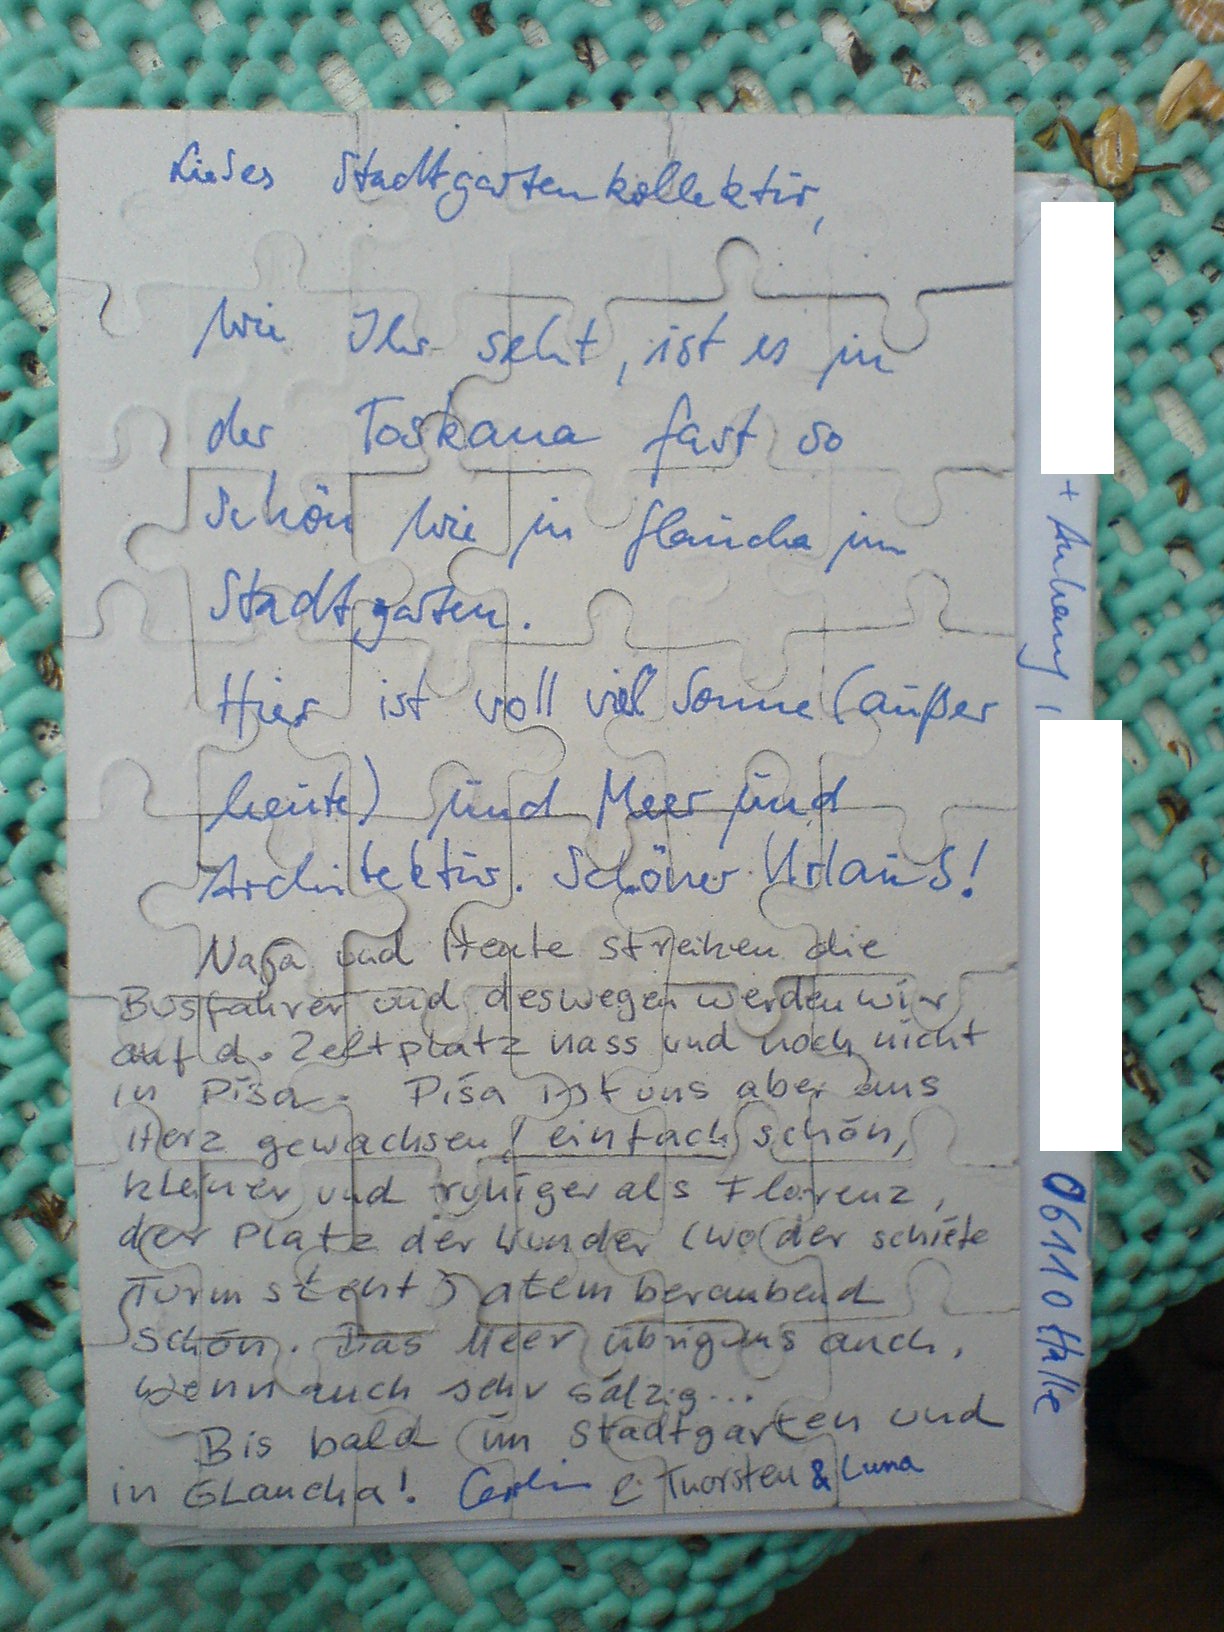 Liebes Stadtgartenkollektiv,
Wie Ihr seht, ist es in
der Toskana fast so
schön wie in Glaucha im
Stadtgarten.
Hier ist voll viel Sonne (außer
heute) und Meer und
Architektur. Schöner Urlaub!
Naja und Heute streiken die
Busfahrer und deswegen werden wir
auf d. Zeltplatz nass und noch nicht
in Pisa. Pisa ist uns aber ans
Herz gewachsen! einfach schön,
kleiner und ruhiger als Florenz,
der Platz der Wunder (wo der schiefe
Turm steht) atemberaubend
schön. Das Meer übrigens auch,
wenn auch sehr salzig...
Bis bald im Stadtgarten und
in Glaucha! Carolin & Thorsten & Luna
+ Anhang
06110 Halle